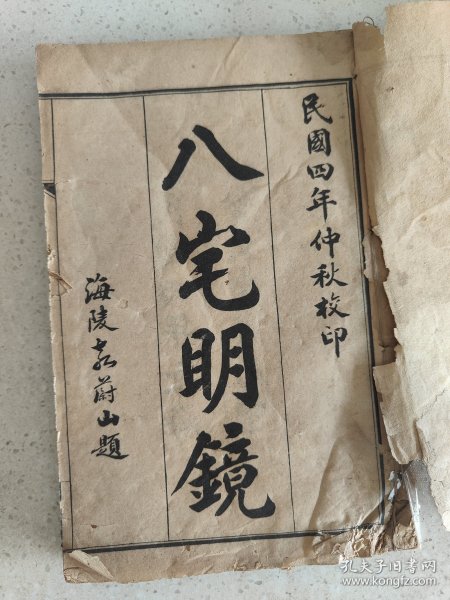 民國四年仲秋校印
八宅明鏡
海陵 蔚山題
孔夫子旧书网
www.kongfz.com